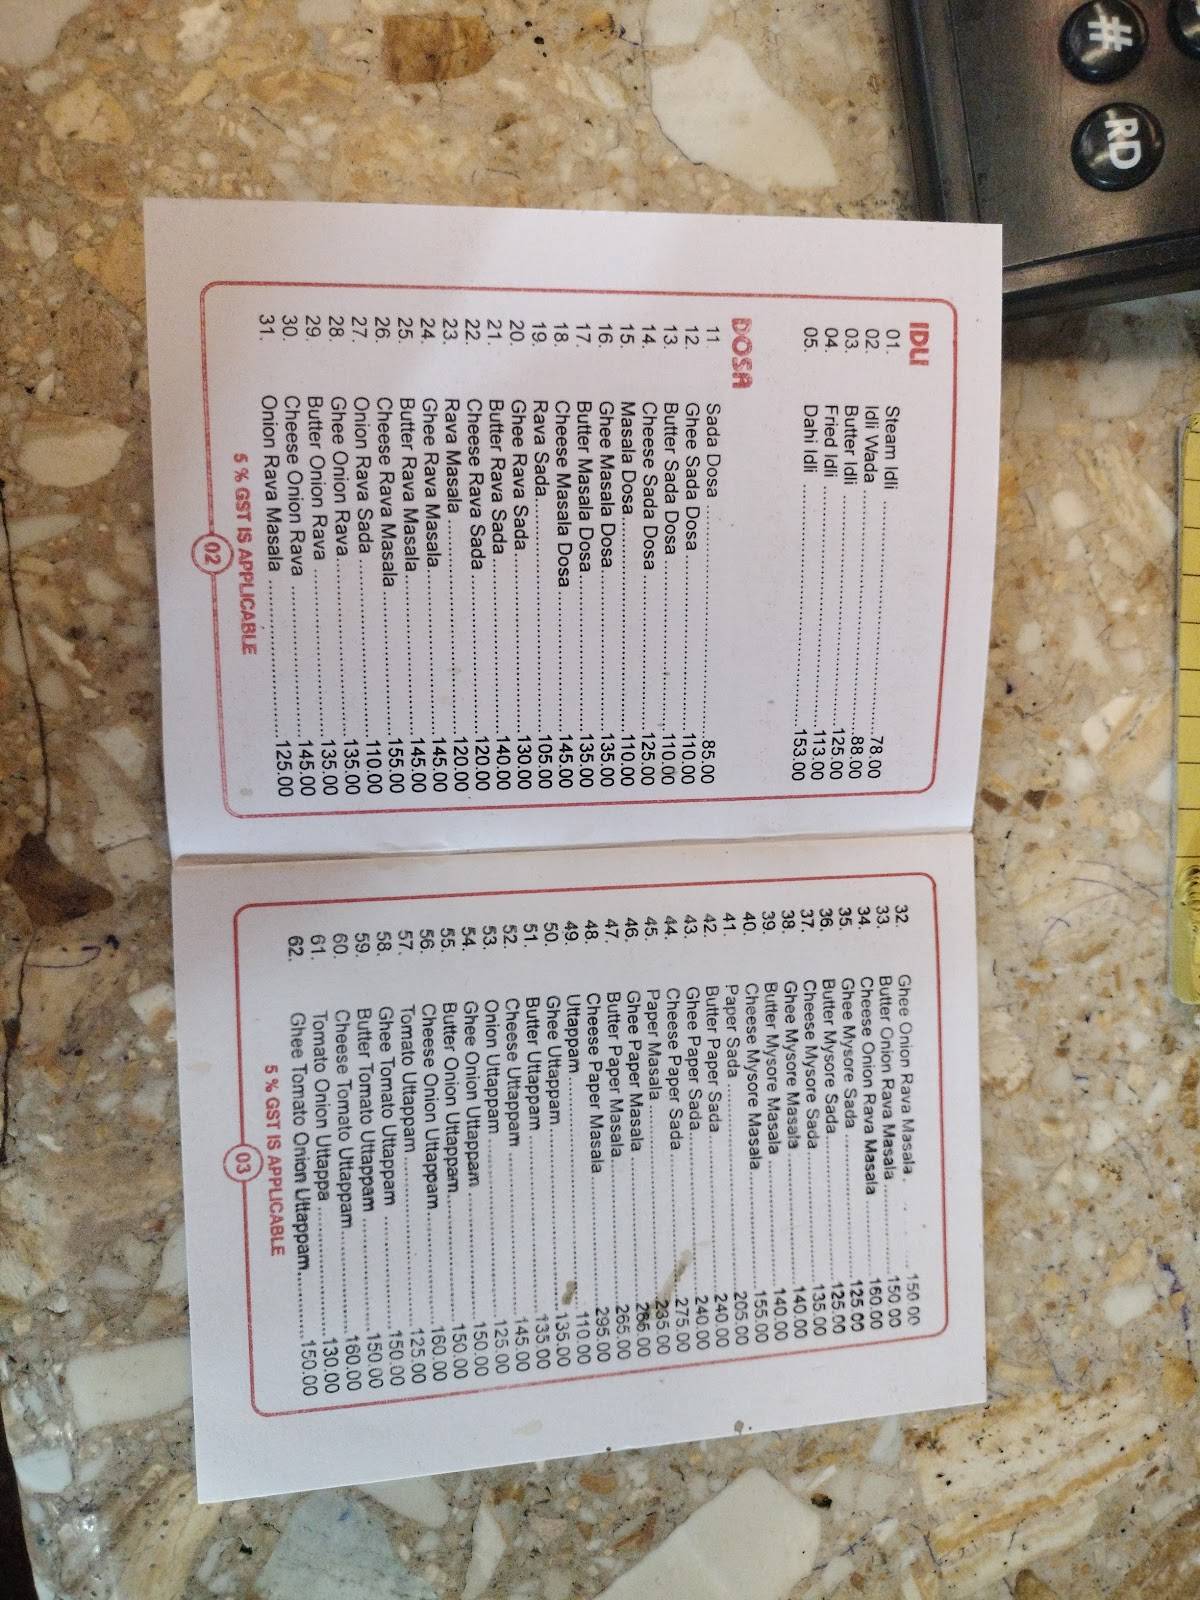 #
RD
IDLI
01. Steam Idli ........ 78.00
02. Idli Wada ........ 88.00
03. Butter Idli ........ 125.00
04. Fried Idli ........ 113.00
05. Dahi Idli ........ 153.00
DOSA
11. Sada Dosa ........ 85.00
12. Ghee Sada Dosa ........ 110.00
13. Butter Sada Dosa ........ 110.00
14. Cheese Sada Dosa ........ 125.00
15. Masala Dosa ........ 110.00
16. Ghee Masala Dosa ........ 135.00
17. Butter Masala Dosa ........ 135.00
18. Cheese Masala Dosa ........ 145.00
19. Rava Sada ........ 105.00
20. Ghee Rava Sada ........ 130.00
21. Butter Rava Sada ........ 140.00
22. Cheese Rava Sada ........ 120.00
23. Rava Masala ........ 120.00
24. Ghee Rava Masala ........ 145.00
25. Butter Rava Masala ........ 145.00
26. Cheese Rava Masala ........ 155.00
27. Onion Rava Sada ........ 110.00
28. Ghee Onion Rava ........ 135.00
29. Butter Onion Rava ........ 135.00
30. Cheese Onion Rava ........ 145.00
31. Onion Rava Masala ........ 125.00
5 % GST IS APPLICABLE
02
32. Ghee Onion Rava Masala ........ 150.00
33. Butter Onion Rava Masala ........ 150.00
34. Cheese Onion Rava Masala ........ 160.00
35. Ghee Mysore Sada ........ 125.00
36. Butter Mysore Sada ........ 125.00
37. Cheese Mysore Sada ........ 135.00
38. Ghee Mysore Masala ........ 140.00
39. Butter Mysore Masala ........ 140.00
40. Cheese Mysore Masala ........ 155.00
41. Paper Sada ........ 205.00
42. Butter Paper Sada ........ 240.00
43. Ghee Paper Sada ........ 240.00
44. Cheese Paper Sada ........ 275.00
45. Paper Masala ........ 235.00
46. Ghee Paper Masala ........ 265.00
47. Butter Paper Masala ........ 265.00
48. Cheese Paper Masala ........ 295.00
49. Uttappam ........ 110.00
50. Ghee Uttappam ........ 135.00
51. Butter Uttappam ........ 135.00
52. Cheese Uttappam ........ 145.00
53. Onion Uttappam ........ 125.00
54. Ghee Onion Uttappam ........ 150.00
55. Butter Onion Uttappam ........ 150.00
56. Cheese Onion Uttappam ........ 160.00
57. Tomato Uttappam ........ 125.00
58. Ghee Tomato Uttappam ........ 150.00
59. Butter Tomato Uttappam ........ 150.00
60. Cheese Tomato Uttappam ........ 160.00
61. Tomato Onion Uttappa ........ 130.00
62. Ghee Tomato Onion Uttappam ........ 150.00
5 % GST IS APPLICABLE
03